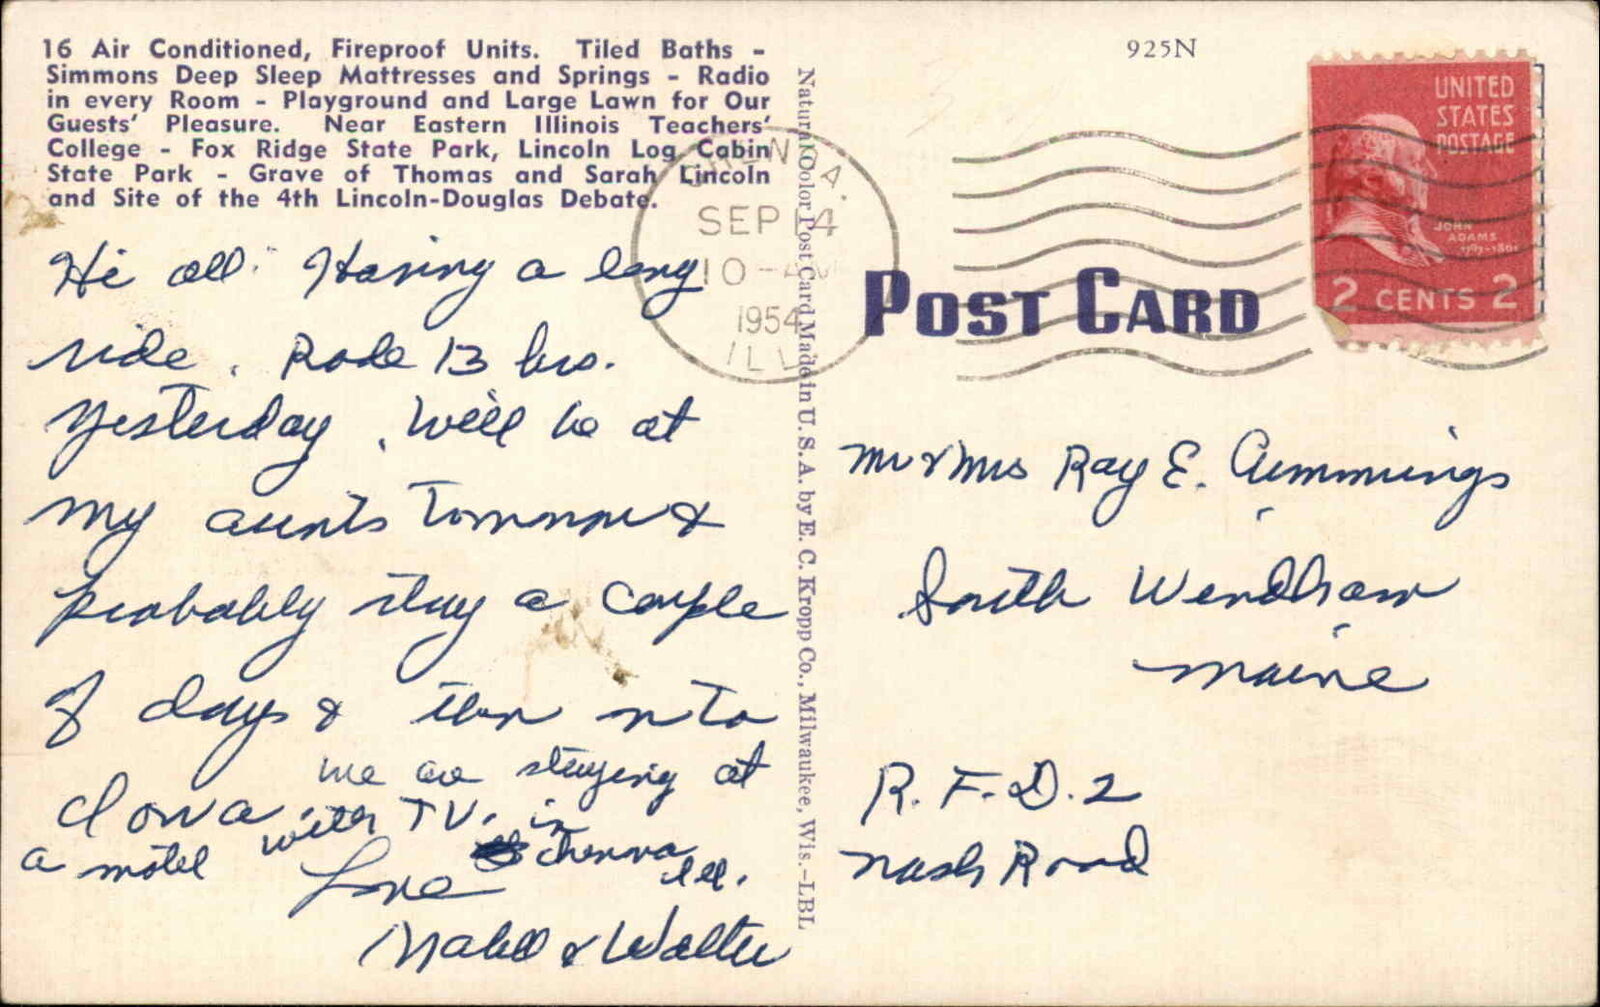 16 Air Conditioned, Fireproof Units. Tiled Baths -
Simmons Deep Sleep Mattresses and Springs - Radio
in every Room - Playground and Large Lawn for Our
Guests' Pleasure. Near Eastern Illinois Teachers'
College - Fox Ridge State Park, Lincoln Log Cabin
State Park - Grave of Thomas and Sarah Lincoln
and Site of the 4th Lincoln-Douglas Debate.
Hi all. Having a long
ride. Rode 13 hrs.
Yesterday. Will be at
my aunts Tomorrow &
probably stay a couple
of days & then on to
Iowa.
we are staying at
a motel with TV. in
Chenoa
Ill.
Love
Mabel & Walter
Natural Color Post Card Made in U. S. A. by E. C. Kropp Co., Milwaukee, Wis.-LBL
925N
CHENOA.
SEP 14
10-AM
1954
ILL
UNITED
STATES
POSTAGE
JOHN
ADAMS
1797-1801
2 CENTS 2
POST CARD
Mr & Mrs Ray E. Cummings
South Windham
Maine
R. F. D. 2
Nash Road